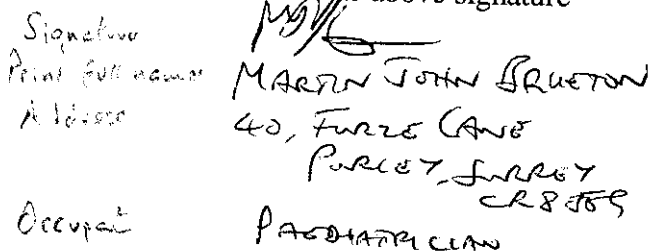 above signature
Signature
Print full name MARTIN JOHN BRUETON
Address 40, FURZE LANE
PURLEY, SURREY
CR8 3EG
Occupat PAEDIATRICIAN